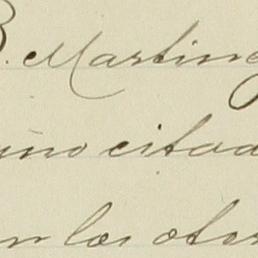 B. Martine
uno citad
en los otor